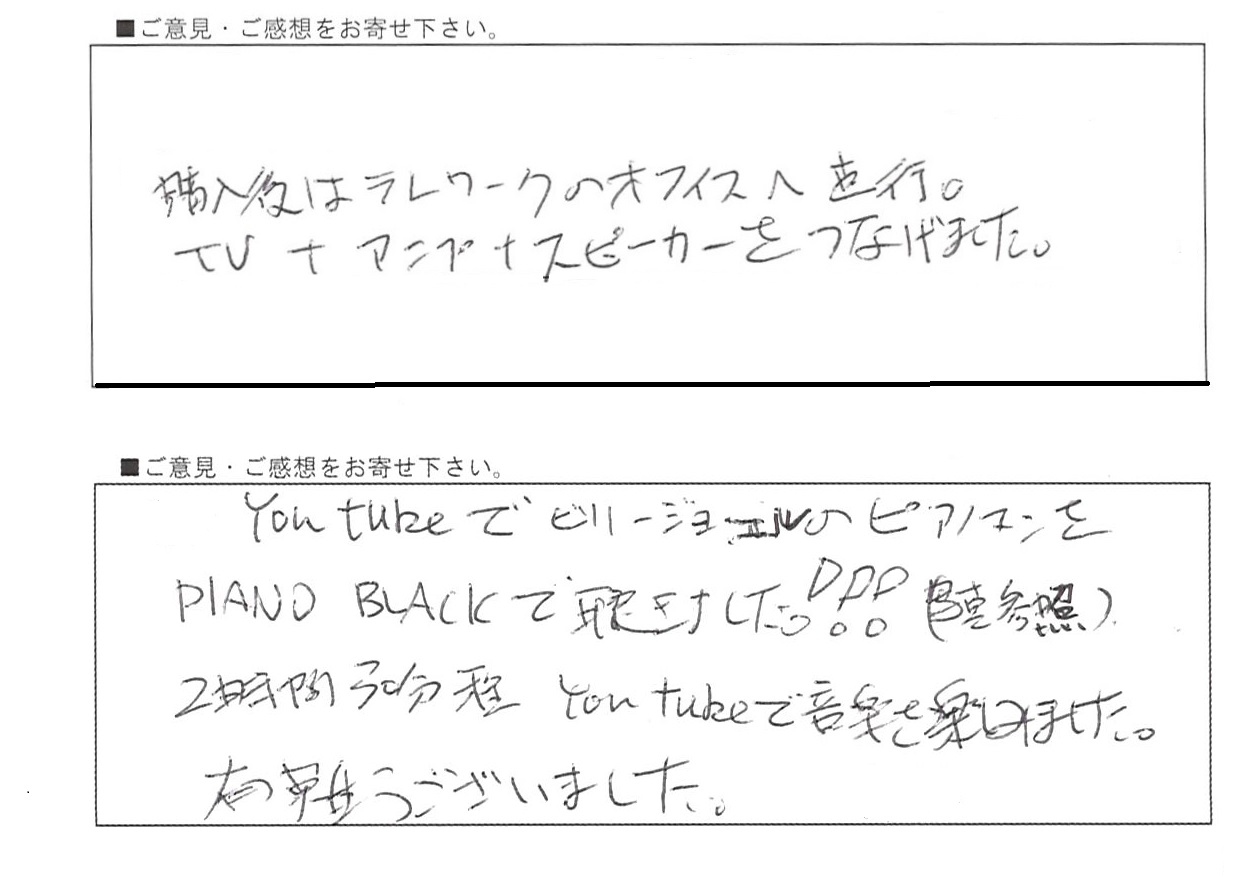 ■ご意見・ご感想をお寄せ下さい。
購入後はテレワークのオフィスへ直行。
TV+アンプ+スピーカーをつなげました。
■ご意見・ご感想をお寄せ下さい。
You tubeでビリージョエルのピアノマンを
PIANO BLACKで聴きました!!!(写真参照)
2時間30分程 You tubeで音楽を楽しめました。
有難うございました。